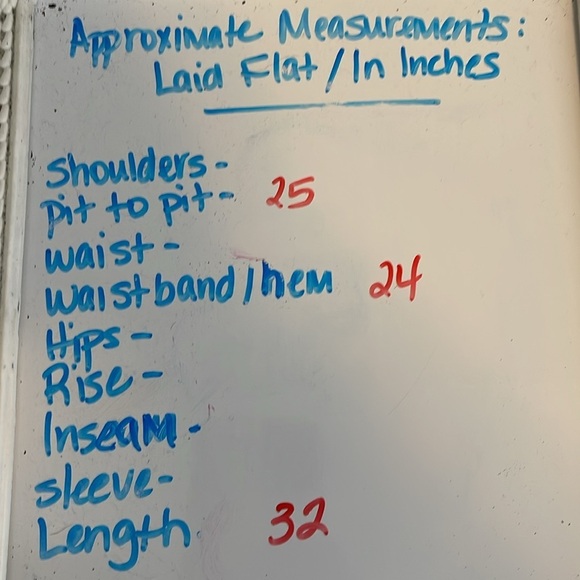 Approximate Measurements:
Laid Flat / In Inches
Shoulders -
pit to pit - 25
waist -
Waistband / hem 24
Hips -
Rise -
Inseam -
sleeve -
Length 32